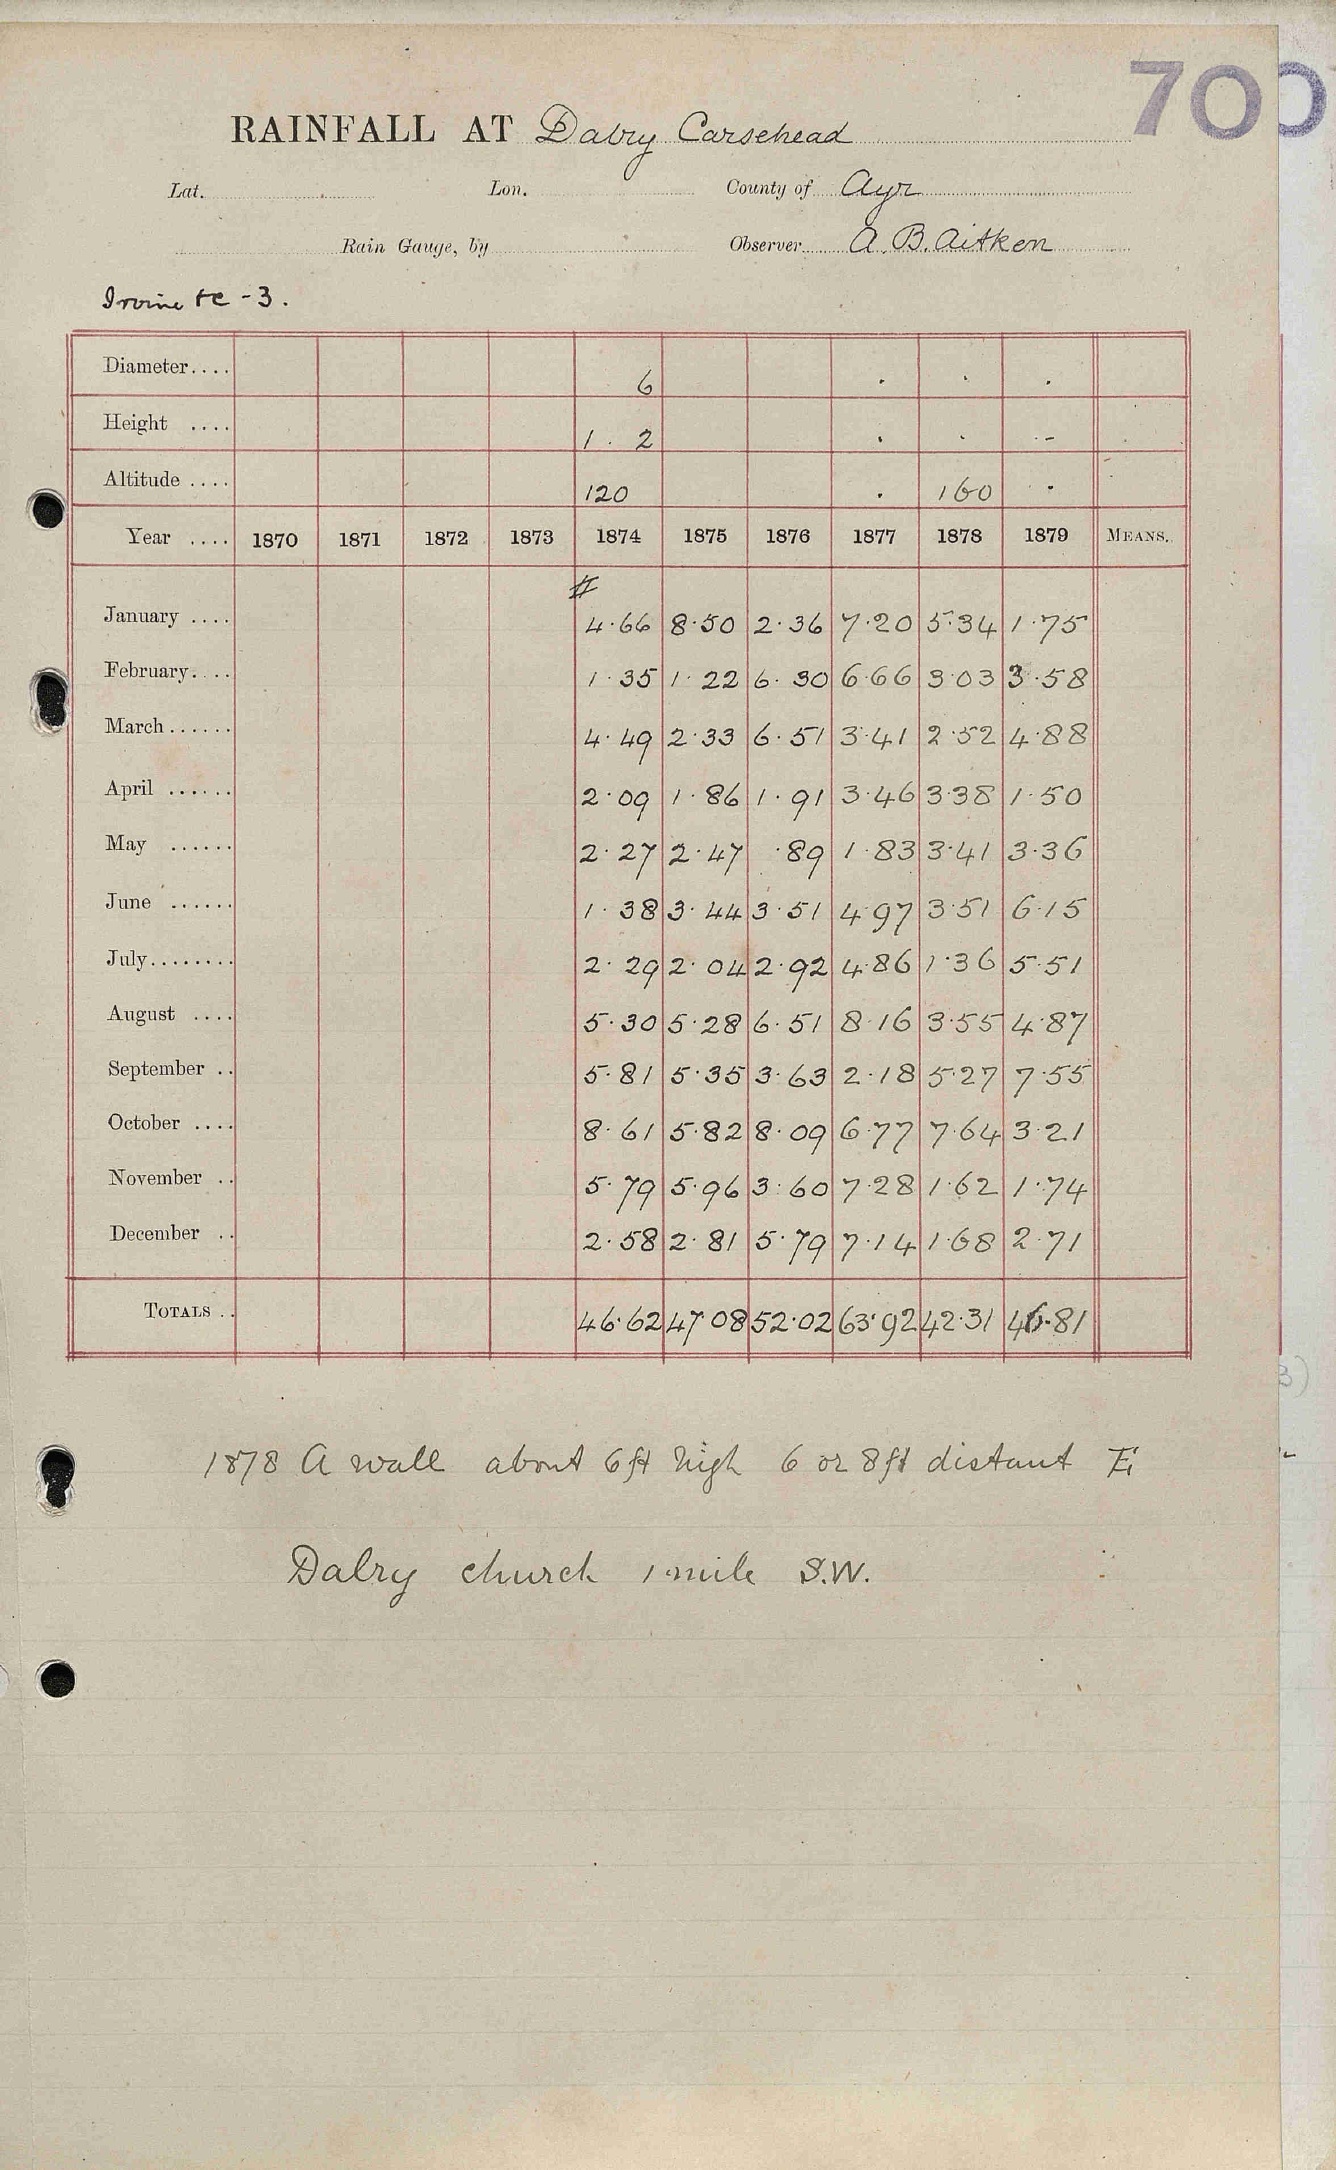 700
RAINFALL AT Dalry Carsehead
Lat. Lon. County of Ayr
Rain Gauge, by Observer A. B. Aitken
Irvine &c - 3.
Diameter.... 6 . . .
Height .... 1 . 2 . . . -
Altitude .... 120 . 160 .
Year .... 1870 1871 1872 1873 1874 1875 1876 1877 1878 1879 MEANS.
#
January .... 4.66 8.50 2.36 7.20 5.34 1.75
February.... 1.35 1.22 6.30 6.66 3.03 3.58
March...... 4.49 2.33 6.51 3.41 2.52 4.88
April ...... 2.09 1.86 1.91 3.46 3.38 1.50
May ...... 2.27 2.47 .89 1.83 3.41 3.36
June ...... 1.38 3.44 3.51 4.97 3.51 6.15
July........ 2.29 2.04 2.92 4.86 1.36 5.51
August .... 5.30 5.28 6.51 8.16 3.55 4.87
September .. 5.81 5.35 3.63 2.18 5.27 7.55
October .... 8.61 5.82 8.09 6.77 7.64 3.21
November .. 5.79 5.96 3.60 7.28 1.62 1.74
December .. 2.58 2.81 5.79 7.14 1.68 2.71
TOTALS .. 46.62 47.08 52.02 63.92 42.31 46.81
1878 A wall about 6ft high 6 or 8ft distant E
Dalry church 1 mile S.W.